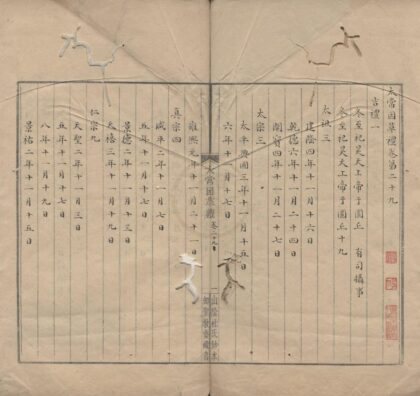 太常因革禮卷第二十九
吉禮一
冬至祀昊天上帝于圜丘 有司攝事
冬至祀昊天上帝于圜丘十九
太祖三
建隆四年十一月十六日
乾德六年十一月二十四日
開寶四年十一月二十八日
太宗三
太平興國三年十一月十五日
六年十一月十七日
太常因革禮 卷二十九
雍熙元年十一月二十一日
真宗四
咸平二年十一月七日
五年十一月十一日
景德二年十一月十三日
天禧三年十一月十九日
仁宗九
天聖二年十一月十三日
五年十一月十七日
八年十一月十九日
景祐二年十一月十五日